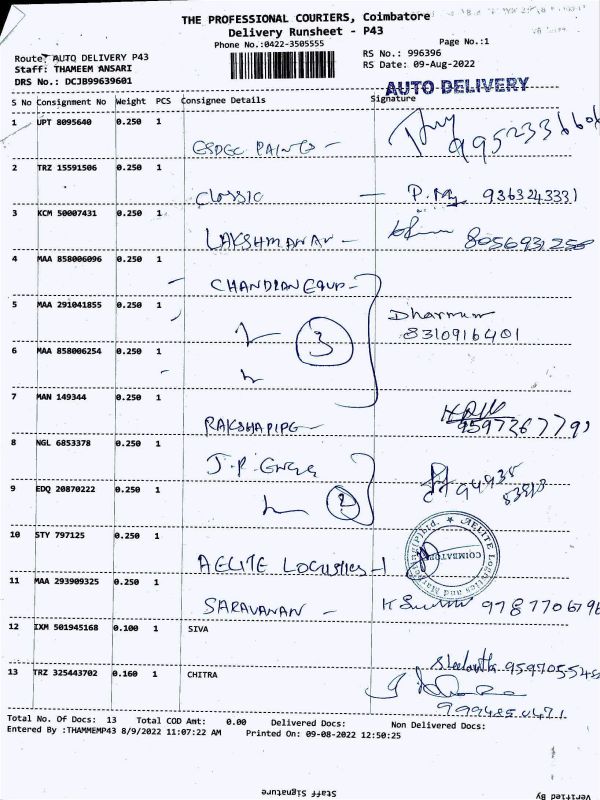 THE PROFESSIONAL COURIERS, Coimbatore
Delivery Runsheet - P43
Phone No.:0422-3505555
Page No.:1
Route: AUTO DELIVERY P43
RS No.: 996396
Staff: THAMEEM ANSARI
RS Date: 09-Aug-2022
DRS No.: DCJB99639601
AUTO DELIVERY
S No Consignment No Weight PCS Consignee Details Signature
1 UPT 8095640 0.250 1
PAINTS -
2 TRZ 15591506 0.250 1
Classic - 9363243331
3 KCM 50007431 0.250 1
LAKSHMANAN - 8056931256
4 MAA 858006096 0.250 1
CHANDIAN EQUP -
5 MAA 291041855 0.250 1
3
8310916401
6 MAA 858006254 0.250 1
7 MAN 149344 0.250 1
RAKSHA PIPE - 9597367791
8 NGL 6853378 0.250 1
J.P.
9 EDQ 20870222 0.250 1
2
10 STY 797125 0.250 1
AELITE LOGISTICS - 1
COIMBATORE
11 MAA 293909325 0.250 1
SARAVANAN - 978770679
12 IXM 501945168 0.100 1 SIVA
13 TRZ 325443702 0.160 1 CHITRA
Total No. Of Docs: 13 Total COD Amt: 0.00 Delivered Docs: Non Delivered Docs:
Entered By :THAMMEMP43 8/9/2022 11:07:22 AM Printed On: 09-08-2022 12:50:25
Staff Signature
Verified By